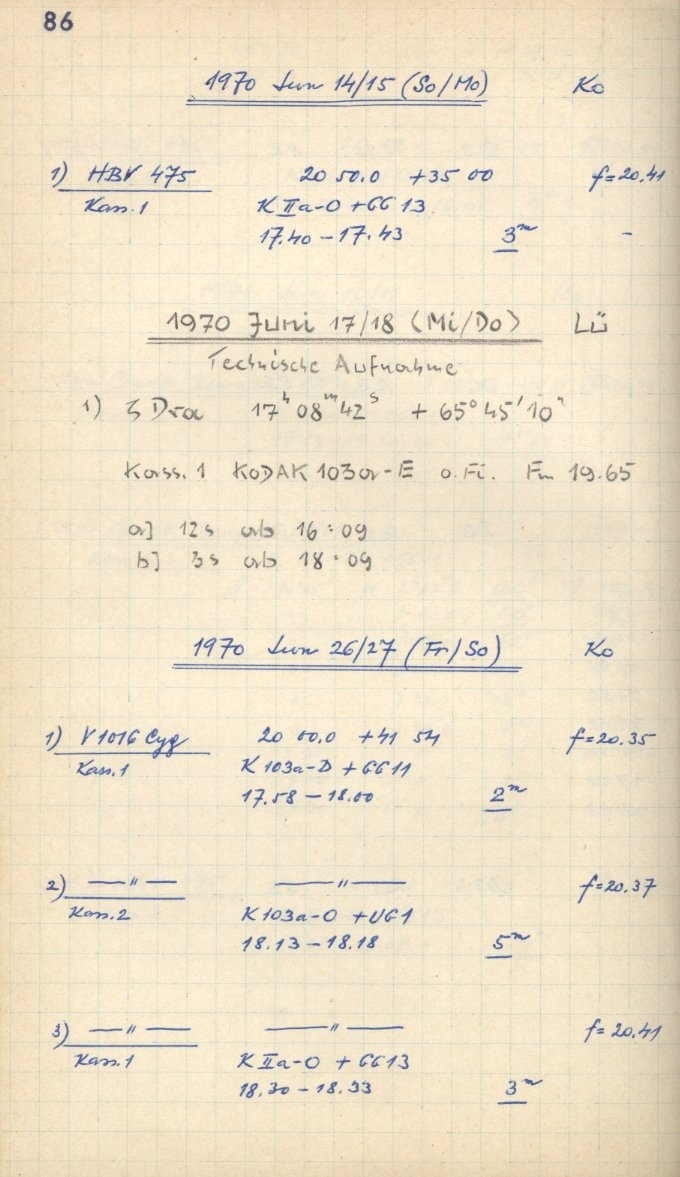 86
1970 Jun 14/15 (So/Mo) Ko
1) HBV 475 20 50.0 +35 00 f=20.41
Kass.1 K IIa-O + GG 13
17.40 – 17.43 3ᵐ –
1970 Juni 17/18 (Mi/Do) Lü
Technische Aufnahme
1) ζ Dra 17ʰ 08ᵐ 42ˢ + 65° 45' 10"
Kass. 1 KODAK 103a-E o. Fi. Fm 19.65
a] 12s ab 16:09
b] 3s ab 18:09
1970 Jun 26/27 (Fr/So) Ko
1) V1016 Cyg 20 00.0 +41 54 f=20.35
Kass.1 K 103a-D + GG11
17.58 – 18.00 2ᵐ
2) — " — — " — f=20.37
Kass.2 K103a-O + UG1
18.13 – 18.18 5ᵐ
3) — " — — " — f=20.41
Kass.1 K IIa-O + GG13
18.30 – 18.33 3ᵐ